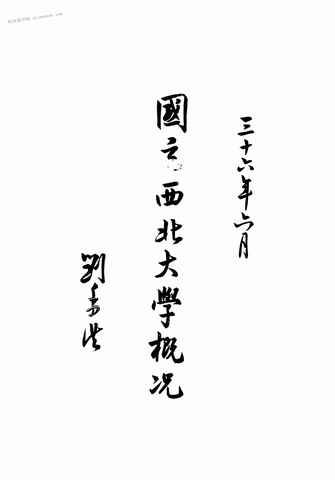 三十六年六月
國立西北大學概况
劉季洪